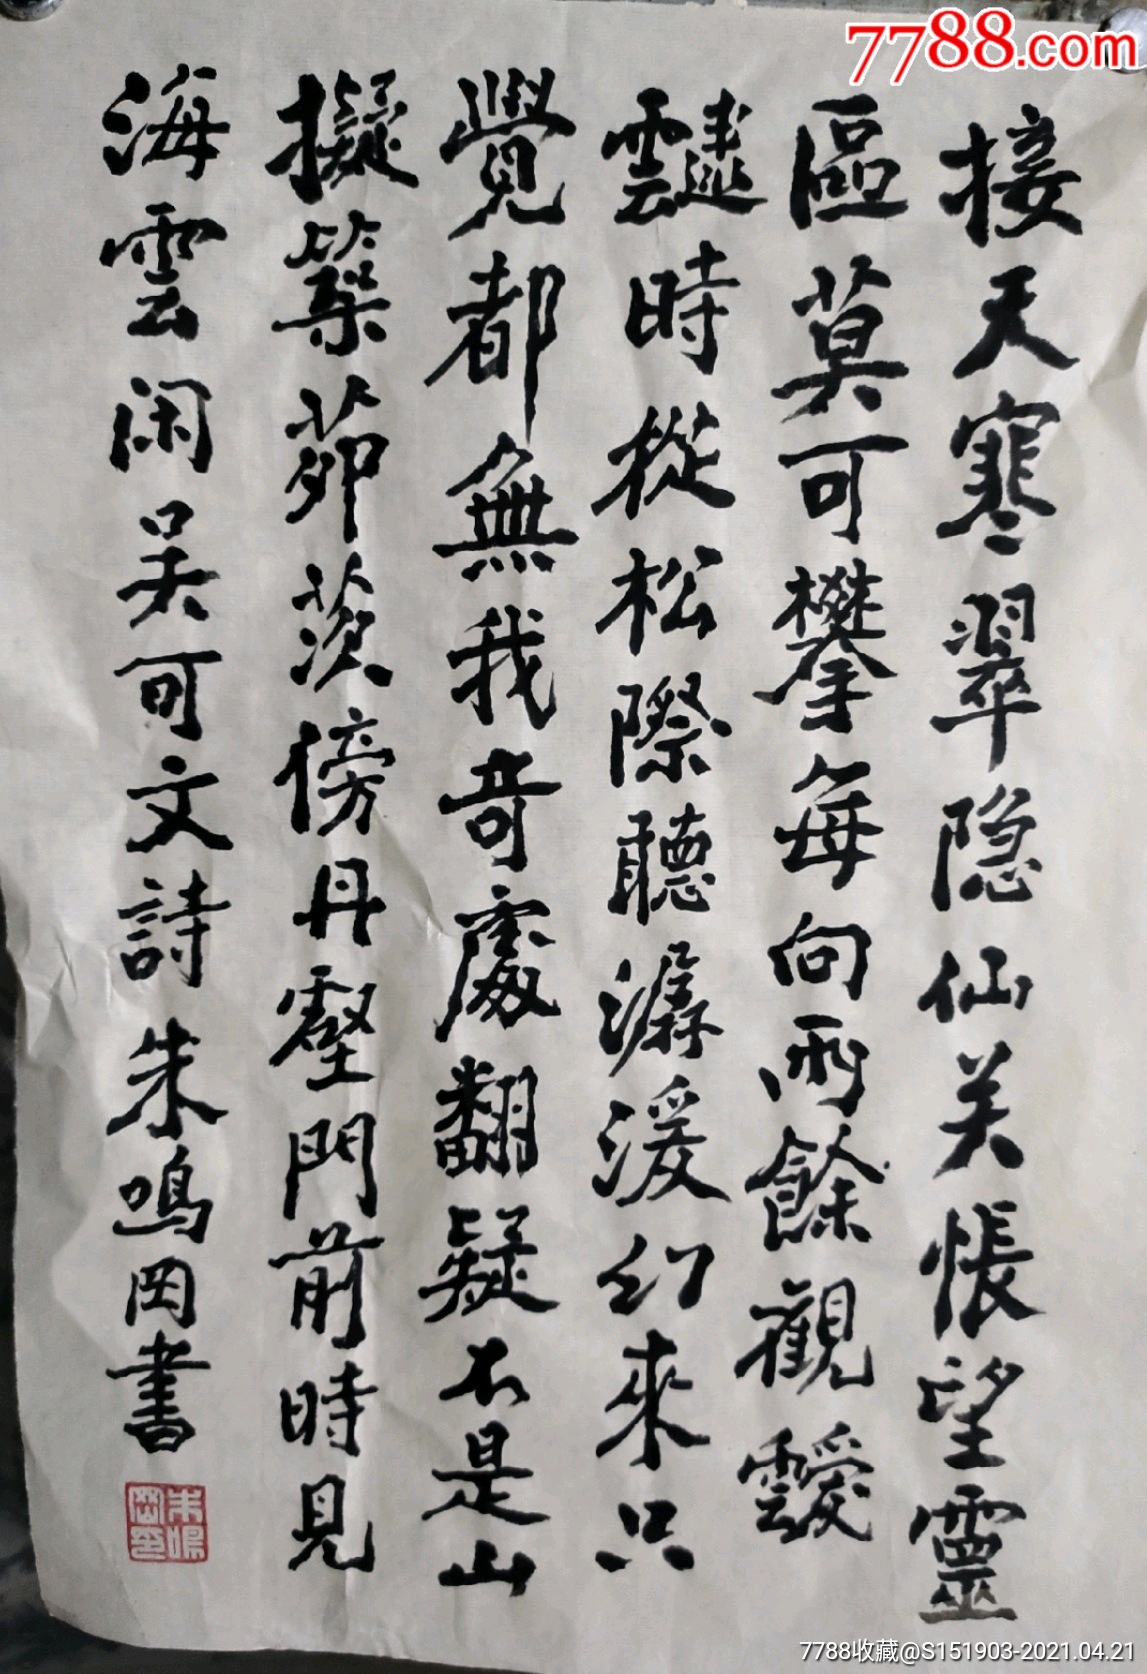 接天寒翠隐仙关悵望靈
區莫可攀每向雨餘觀靉
靆時從松際聽潺湲幻來只
覺都無我奇處翻疑不是山
擬築茆茨傍丹壑門前時見
海雲闲吴可文詩朱鳴岡書
朱鳴岡印
7788.com
7788收藏@S151903-2021.04.21